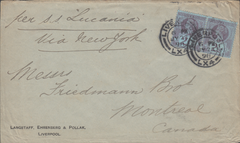 per s.s "Lucania"
via New York
Messrs
Friedmann Bros
Montreal
Canada
LANGSTAFF, EHRENBERG & POLLAK,
LIVERPOOL.
LIVERPOOL
LX